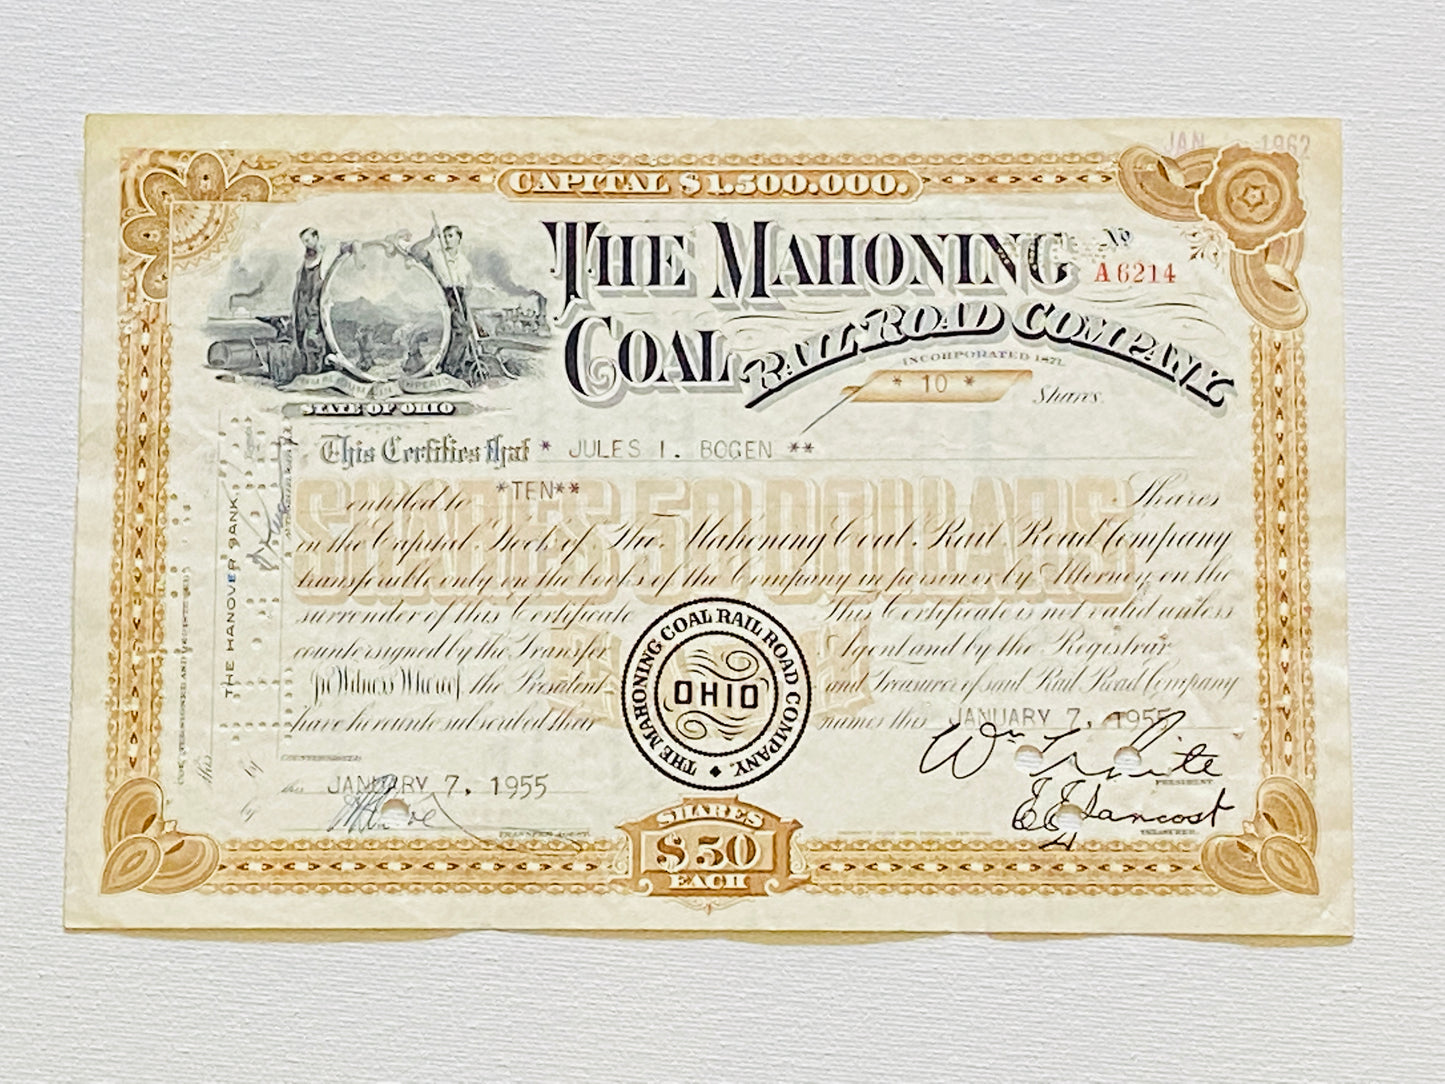 JAN 1962
CAPITAL $1.500.000.
THE MAHONING
COAL RAIL ROAD COMPANY.
No
A6214
INCORPORATED 1871.
* 10 * Shares.
STATE OF OHIO
This Certifies that * JULES I. BOGEN **
entitled to *TEN** Shares
SHARES 50 DOLLARS
in the Capital Stock of The Mahoning Coal Rail Road Company
transferable only on the books of the Company in person or by Attorney on the
surrender of this Certificate This Certificate is not valid unless
countersigned by the Transfer Agent and by the Registrar
In Witness Whereof, the President and Treasurer of said Rail Road Company
have hereunto subscribed their names this JANUARY 7, 1955
THE MAHONING COAL RAIL ROAD COMPANY.
OHIO
COUNTERSIGNED
this JANUARY 7, 1955
TRANSFER AGENT.
Wm White
PRESIDENT.
TREASURER.
SHARES
$50
EACH
THE HANOVER BANK
this
by
by